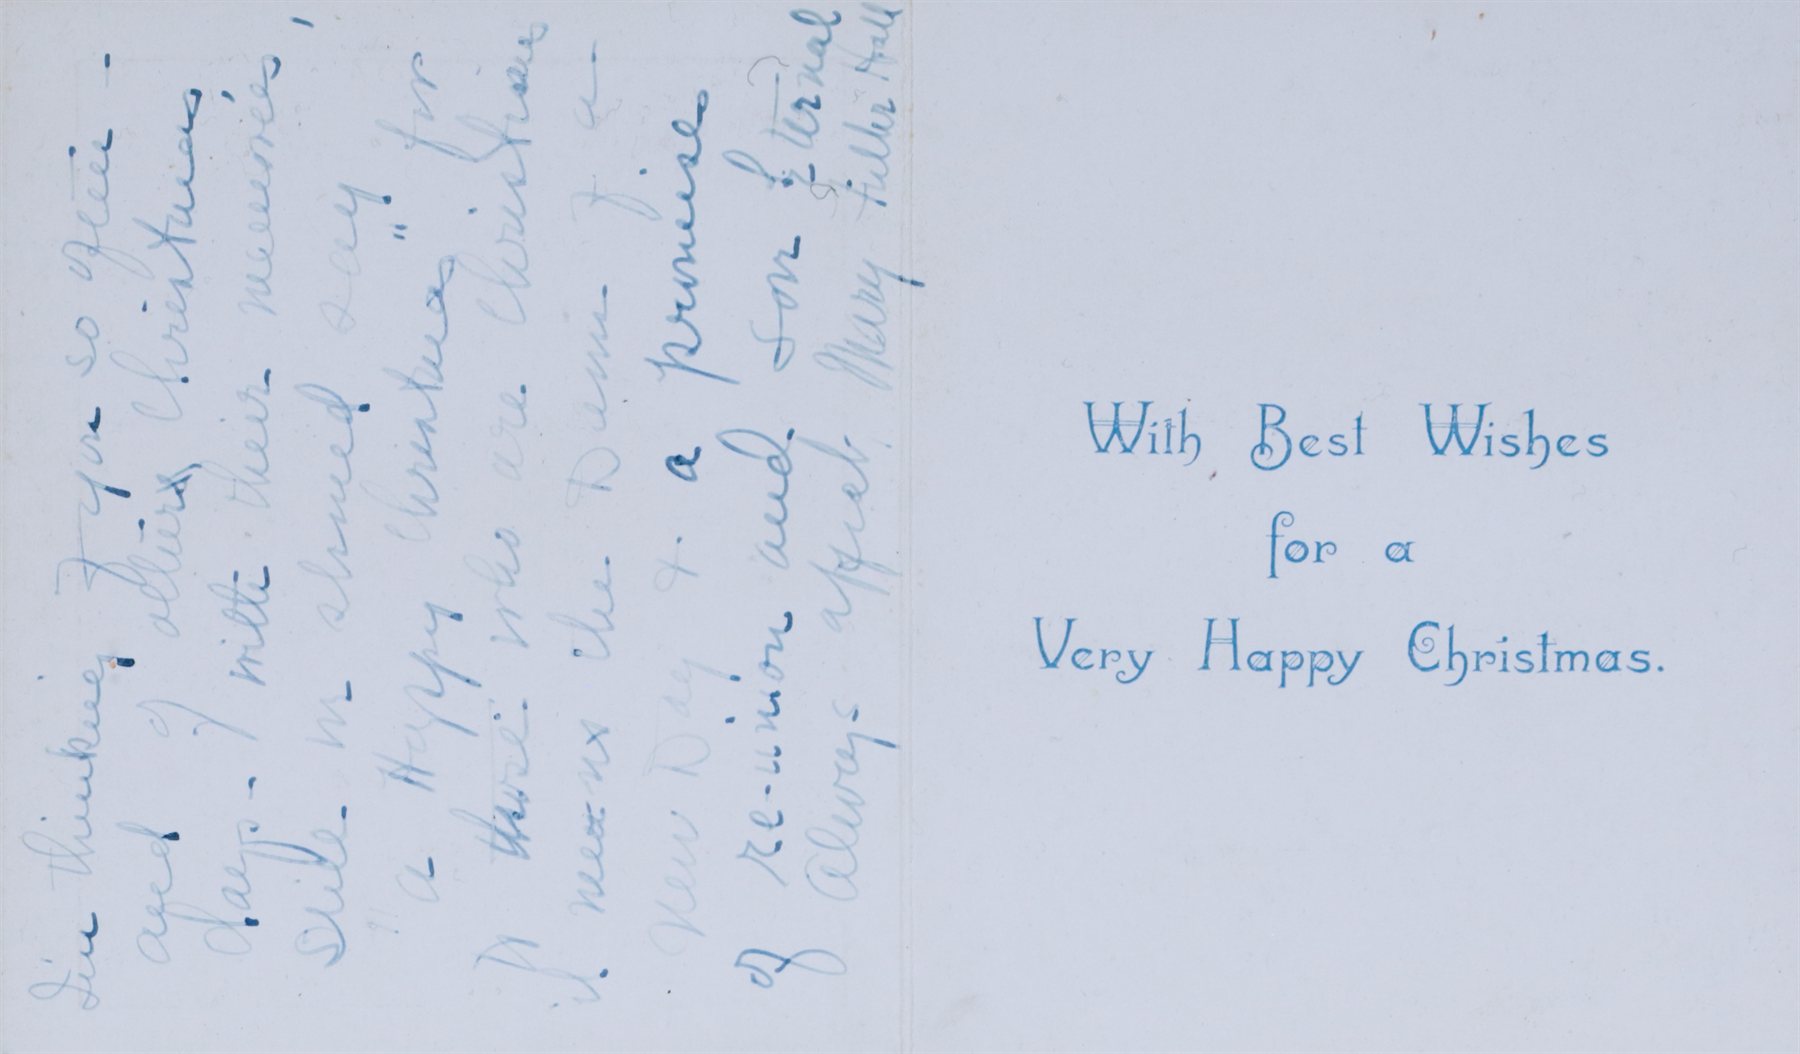 I'm thinking of you so often -
and of others, Christmas
days - of with their memories,
Still in shmed say
"a Happy Christmas" for
to those who are Christians
it means the Dawn of a
New Day & a promise
of re-union and Son Eternal
Always affect. Mary Fuller Hall
With Best Wishes
for a
Very Happy Christmas.